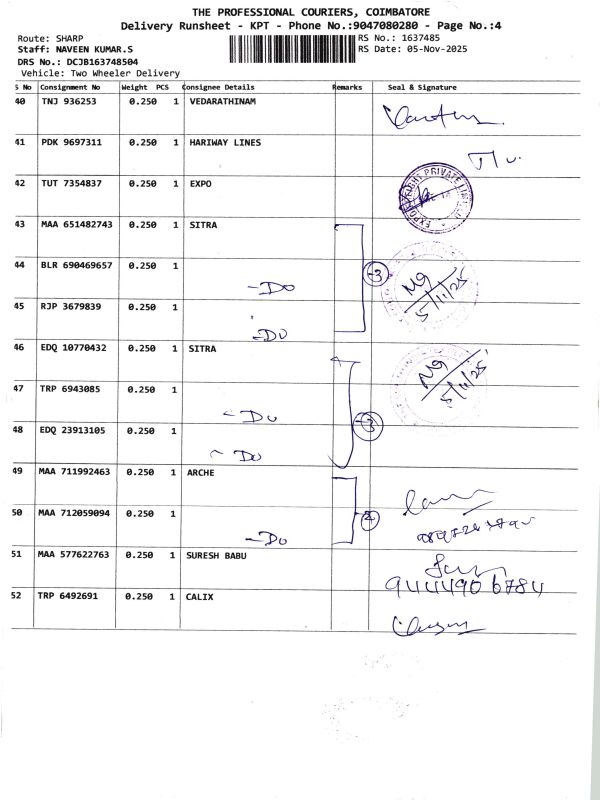 THE PROFESSIONAL COURIERS, COIMBATORE
Delivery Runsheet - KPT - Phone No.:9047080280 - Page No.:4
Route: SHARP RS No.: 1637485
Staff: NAVEEN KUMAR.S RS Date: 05-Nov-2025
DRS No.: DCJB163748504
Vehicle: Two Wheeler Delivery
S No Consignment No Weight PCS Consignee Details Remarks Seal & Signature
40 TNJ 936253 0.250 1 VEDARATHINAM
41 PDK 9697311 0.250 1 HARIWAY LINES
42 TUT 7354837 0.250 1 EXPO
43 MAA 651482743 0.250 1 SITRA
44 BLR 690469657 0.250 1
-Do -3
5/11/25
45 RJP 3679839 0.250 1
-Do
46 EDQ 10770432 0.250 1 SITRA
47 TRP 6943085 0.250 1
5/11/25
-Do
48 EDQ 23913105 0.250 1 -3
-Do
49 MAA 711992463 0.250 1 ARCHE
50 MAA 712059094 0.250 1 2
-Do
51 MAA 577622763 0.250 1 SURESH BABU
9444906784
52 TRP 6492691 0.250 1 CALIX